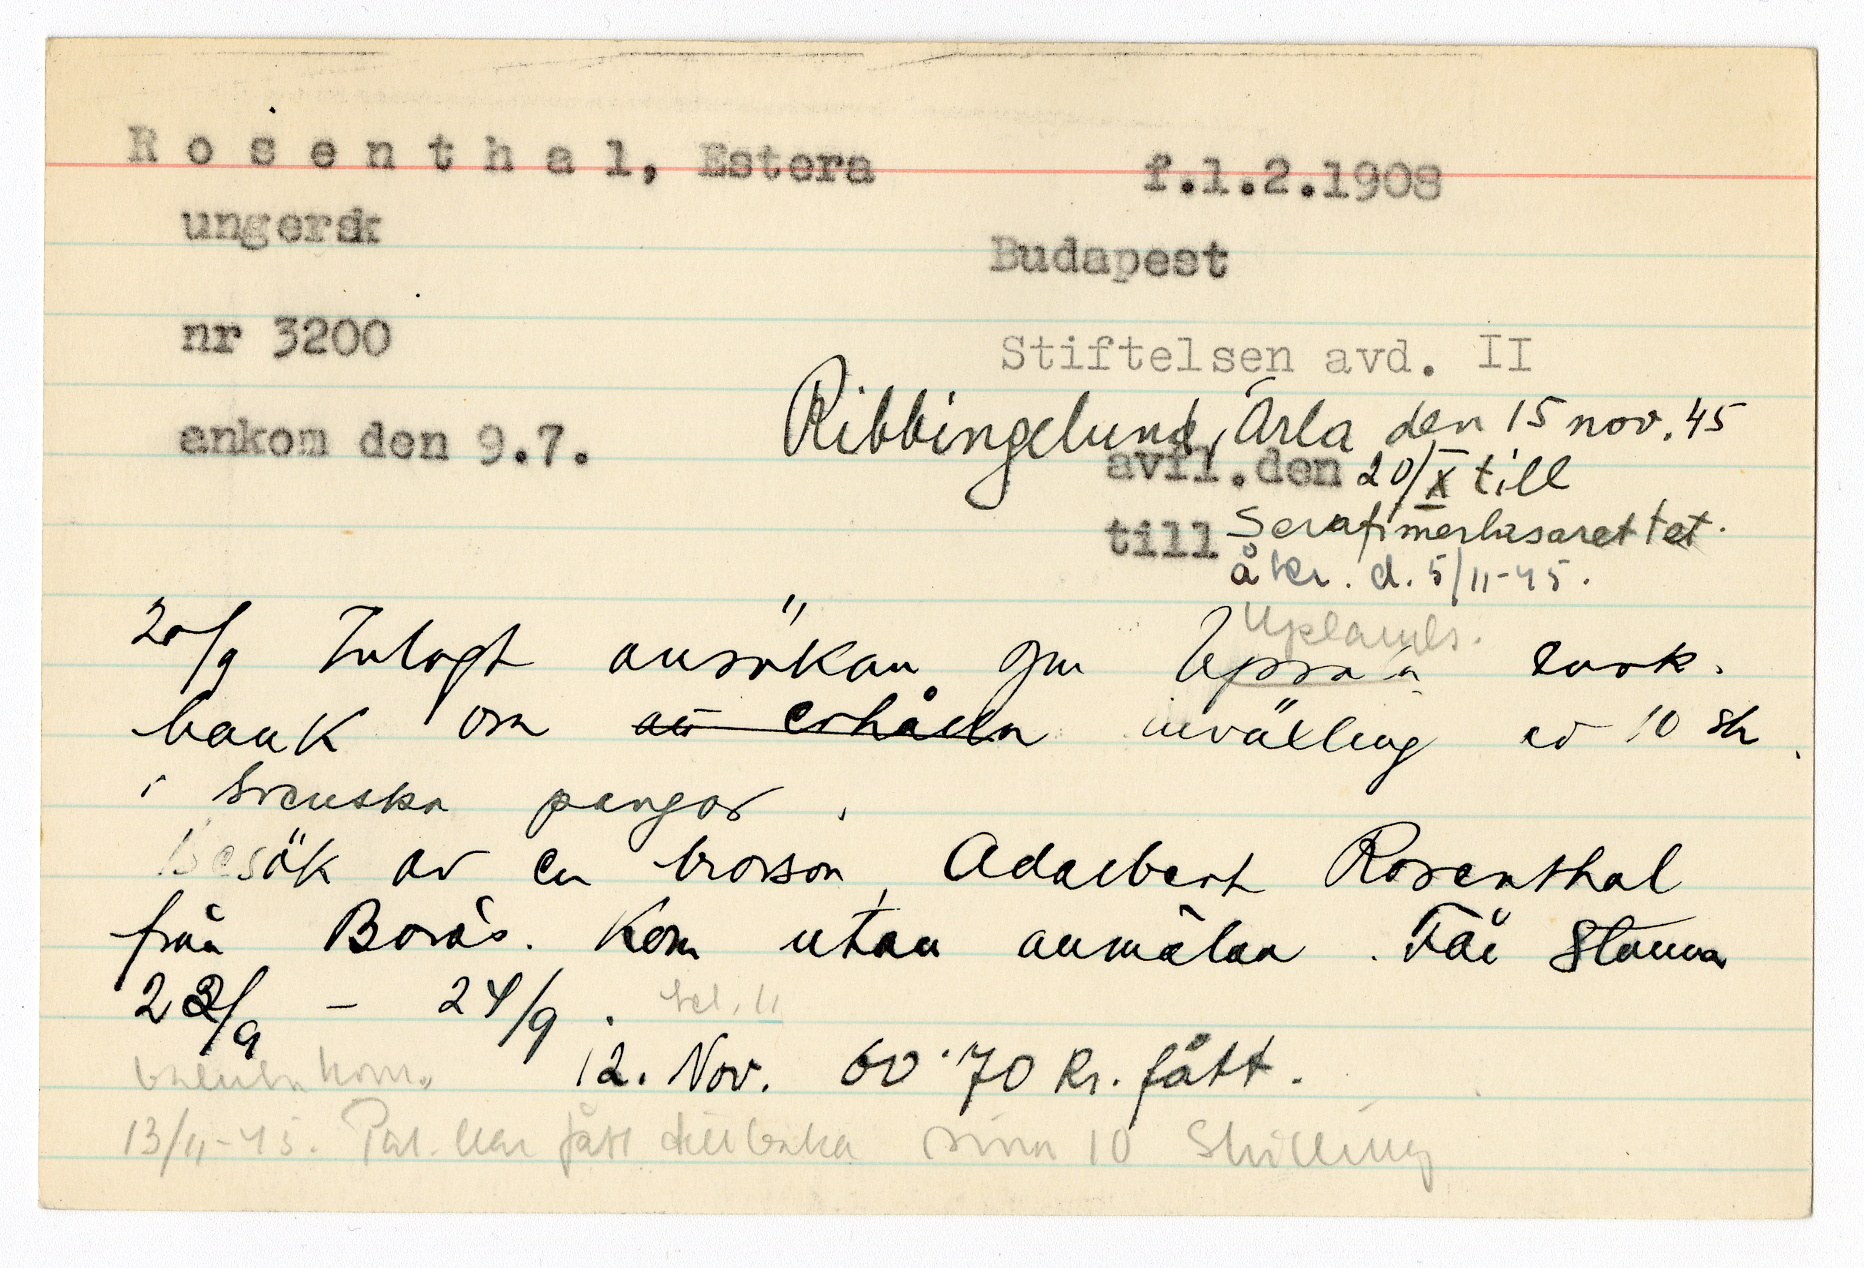 Rosenthal, Estera f.1.2.1908
ungersk
Budapest
nr 3200
Stiftelsen avd. II
Ribbingelund, Ärla den 15 nov. 45
ankom den 9.7.
avfl.den 20/X till
till Serafimerlasarettet.
åter. d. 5/11-45.
Uplands.
20/9 Inlagt ansökan gm Upsala
bank om att erhålla inväxling av 10 sh
i svenska pengar.
Besök av en brorson, Adalbert Rosenthal
från Borås. Kom utan anmälan. Får stanna
23/9 - 24/9.
12. Nov. 60.70 kr. fått.
13/11-45. Pat. har fått tillbaka sina 10 Shilling